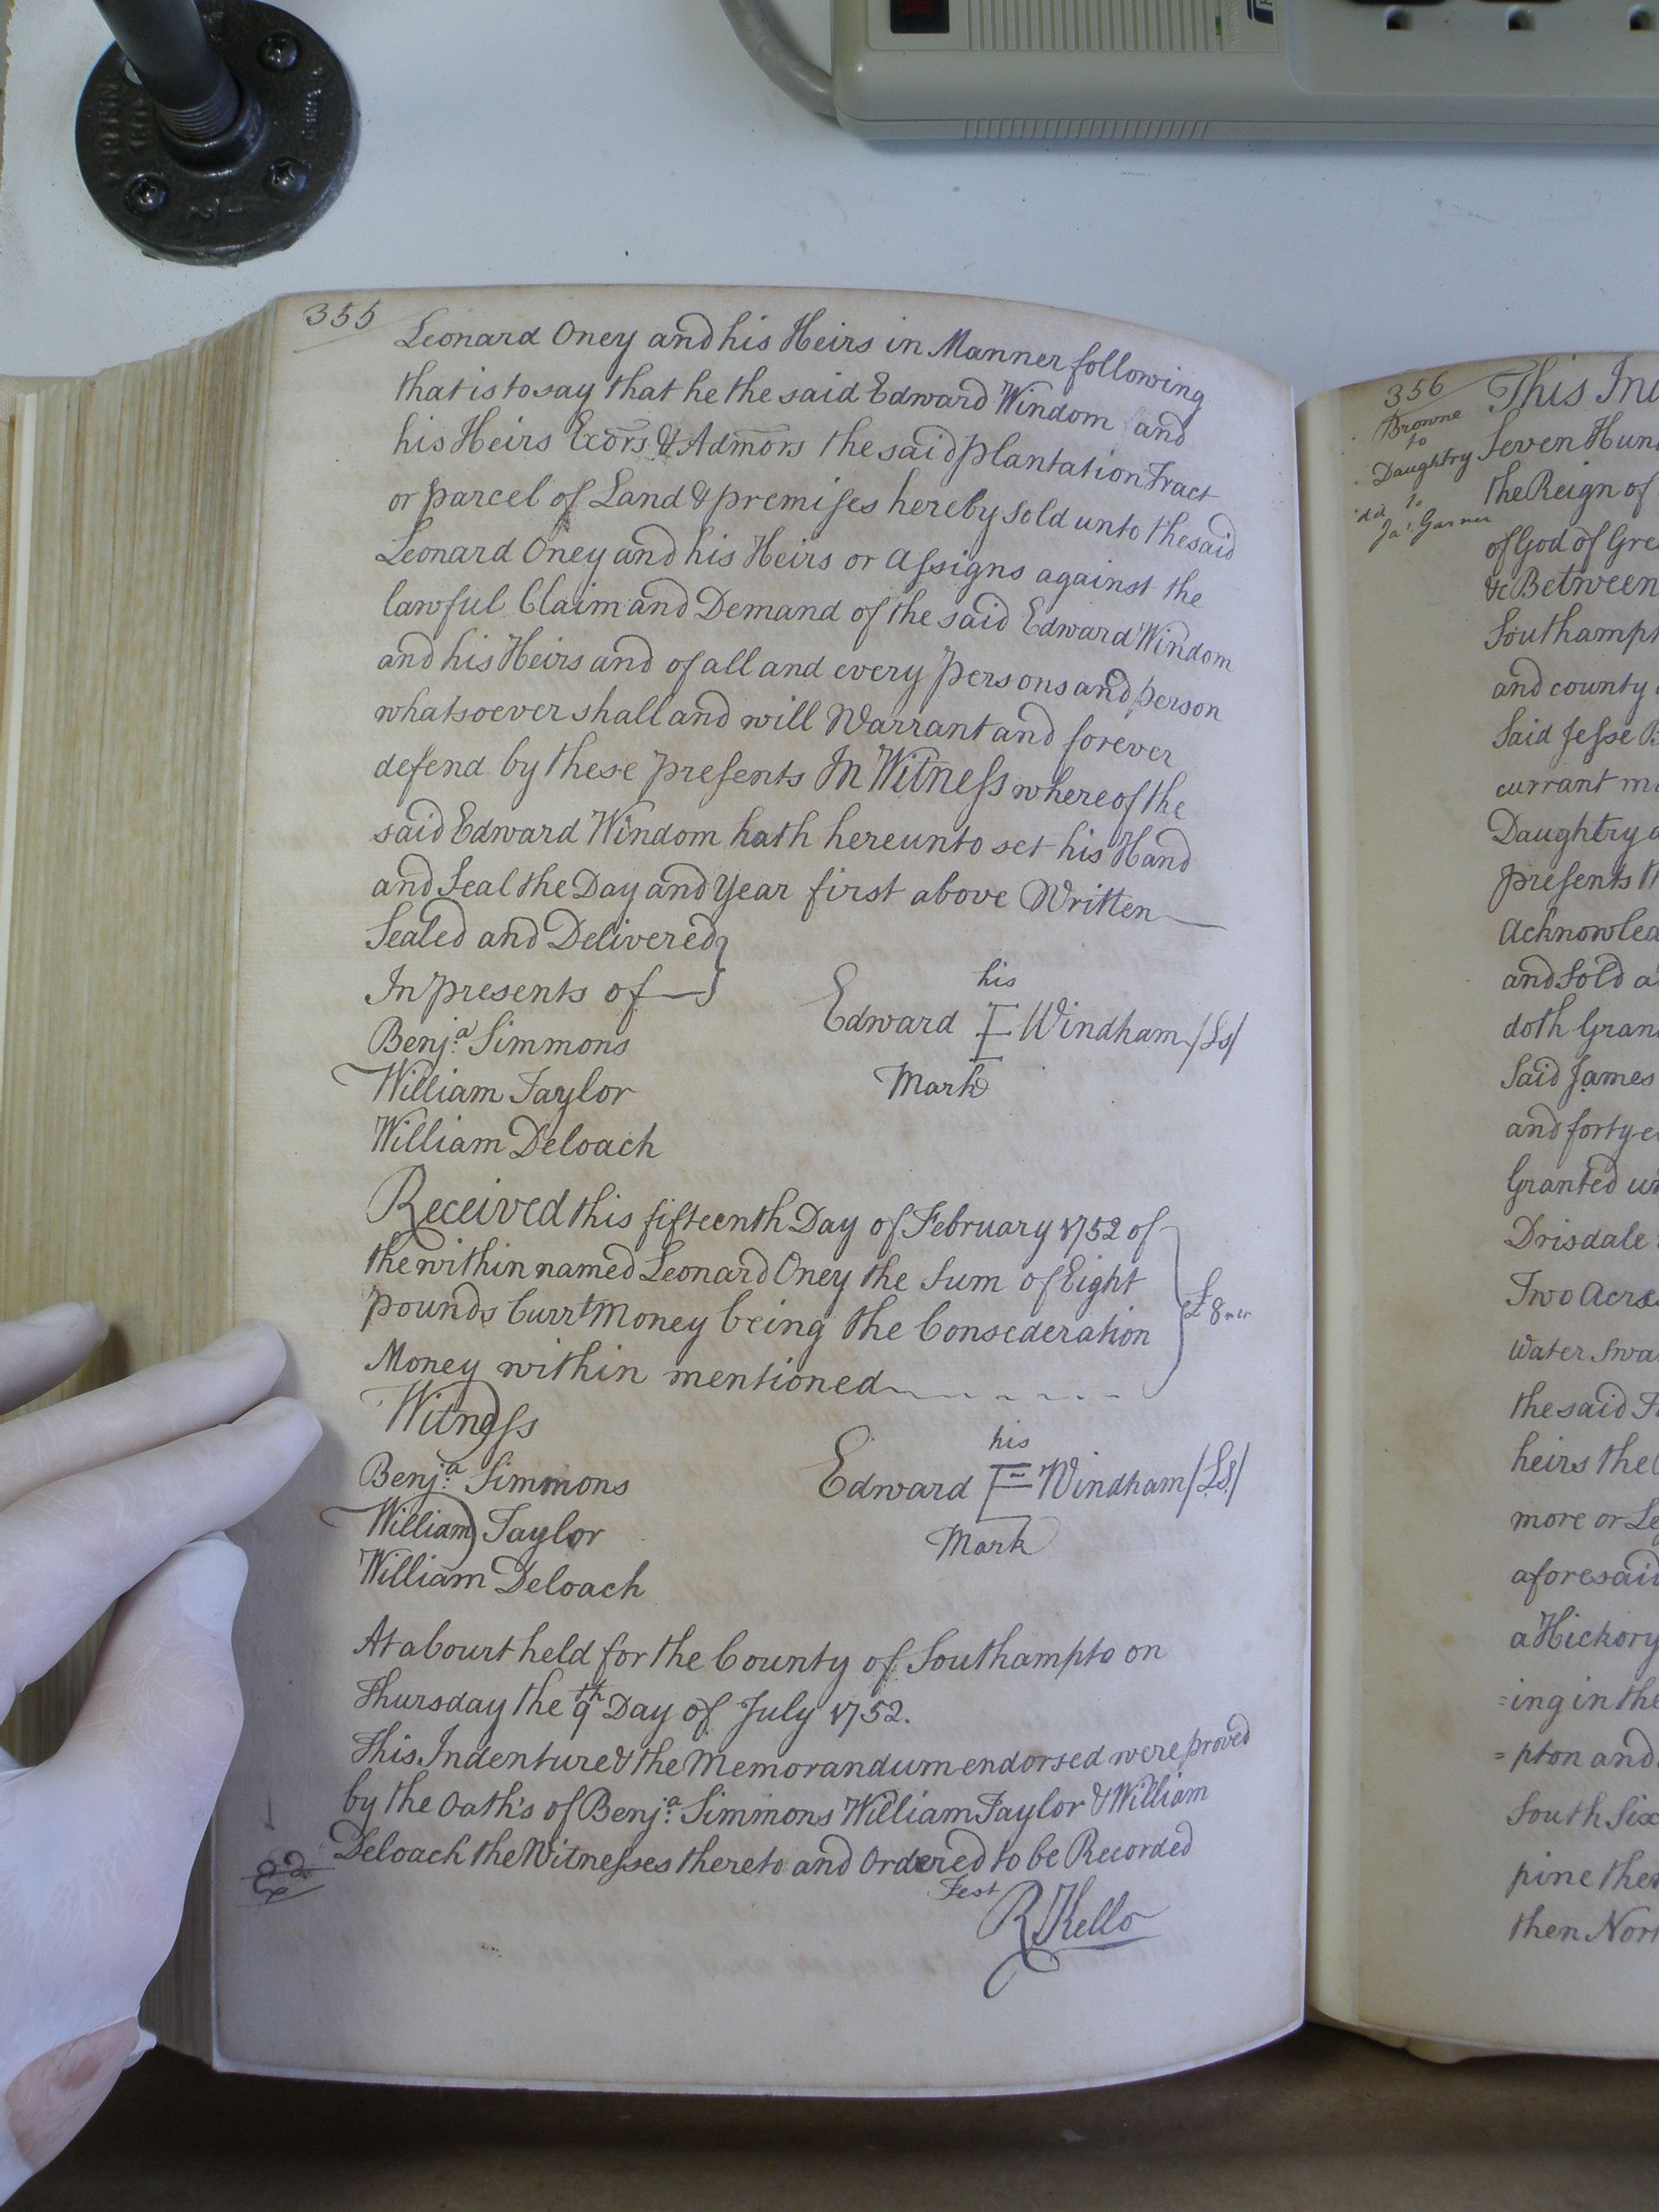 355
Leonard Oney and his Heirs in Manner following
that is to say that he the said Edward Windom and
his Heirs Exors & Admors the said plantation Tract
or parcel of Land & premises hereby sold unto the said
Leonard Oney and his Heirs or Assigns against the
lawful Claim and Demand of the said Edward Windom
and his Heirs and of all and every Persons and person
whatsoever shall and will Warrant and forever
defend by these presents In Witness whereof the
said Edward Windom hath hereunto set his Hand
and Seal the Day and Year first above Written
Sealed and Delivered
In presents of
Benj.a Simmons
William Taylor
William Deloach
his
Edward E Windham /Ls/
Mark
Received this fifteenth Day of February 1752 of
the within named Leonard Oney the Sum of Eight
pounds Curr.t Money being the Consederation
Money within mentioned
£8
Witness
Benj.a Simmons
William Taylor
William Deloach
his
Edward E Windham /LS/
Mark
At a Court held for the County of Southampto on
Thursday the 9th Day of July 1752.
This Indenture & the Memorandum endorsed were proved
by the Oath's of Benj.a Simmons William Taylor & William
Deloach the Witnesses thereto and Ordered to be Recorded
Test
R Kello
356
Browne
to
Daughtry
dd to
Ja.s Garner
This In
Seven Hun
the Reign of
of God of Gre
&c Between
Southampt
and county
Said Jesse B
currant m
Daughtry a
presents th
Acknowled
and Sold a
doth Gran
Said James
and forty e
Granted un
Drisdale
Two Acres
Water Swa
the said
heirs the
more or Le
aforesaid
a Hickory
=ing in the
=pton and
South Six
pine then
then Nor